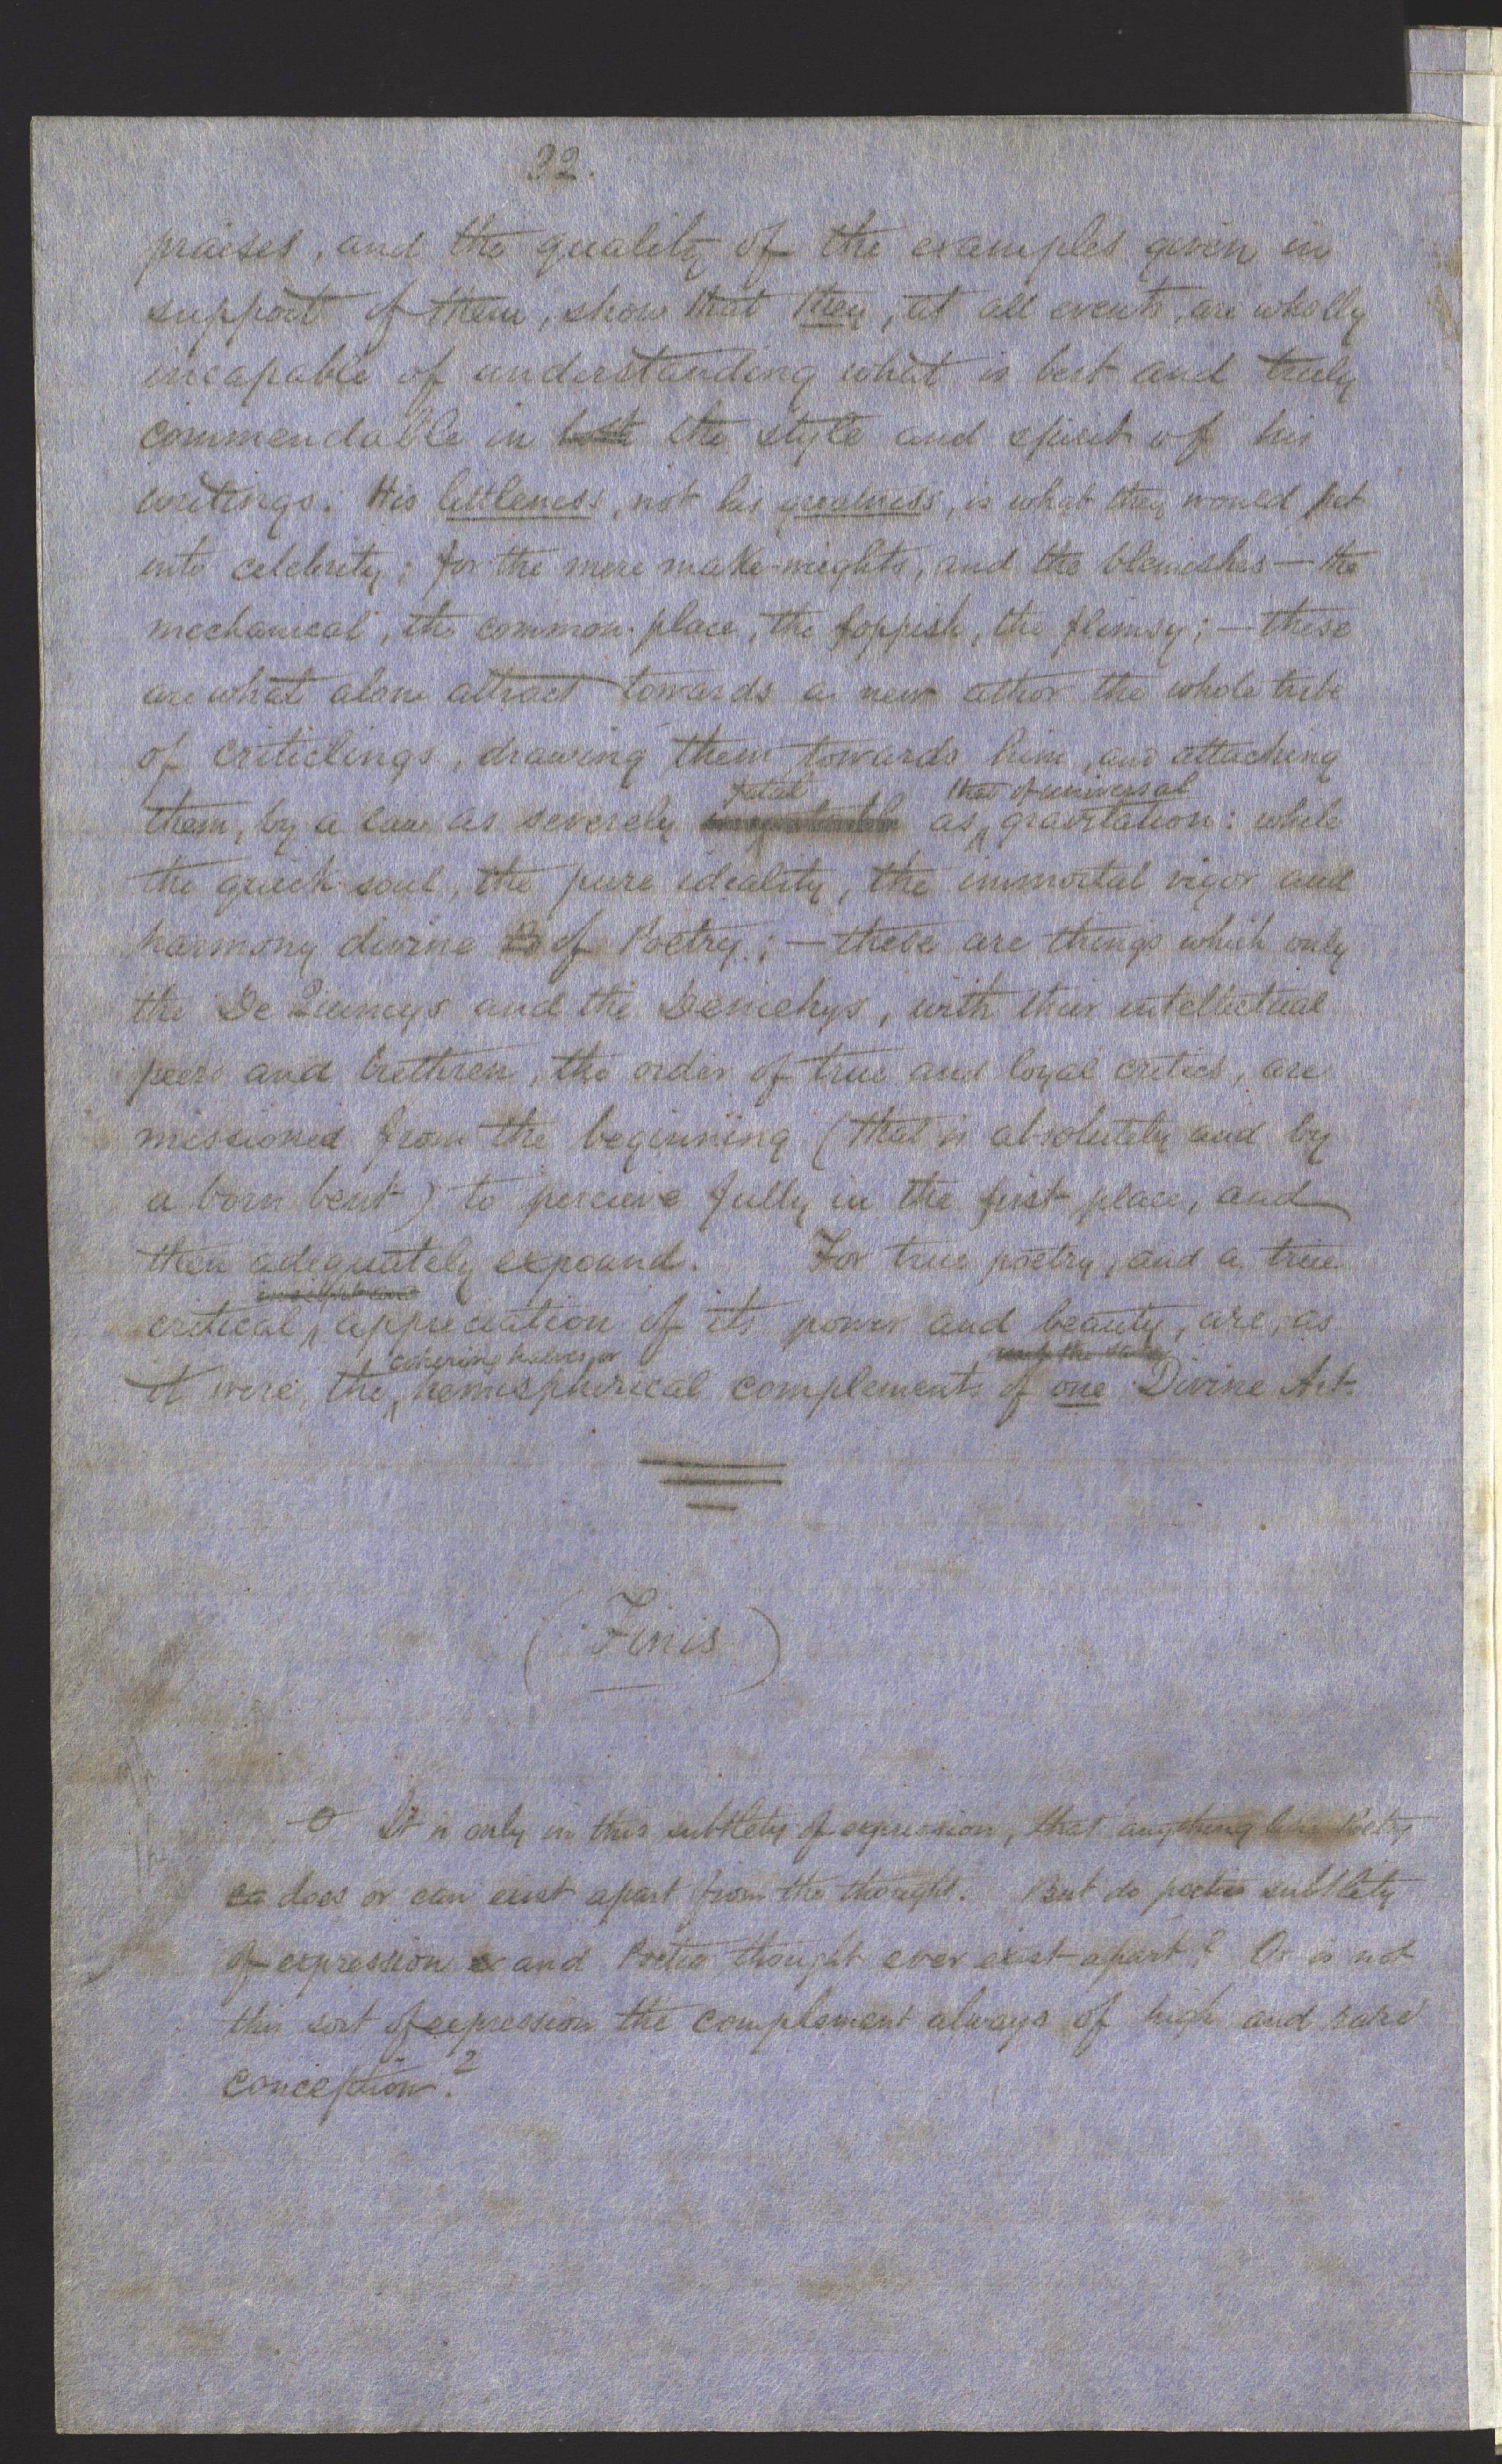 32.
praises, and the quality of the examples given in
support of them, show that they, at all events, are wholly
incapable of understanding what is best and truly
commendable in both the style and spirit of his
writings. His littleness, not his greatness, is what they would put
into celebrity; for the mere make-weights, and the blemishes — the
mechanical, the common-place, the foppish, the flimsy; — these
are what alone attract towards a new athor the whole tribe
of criticlings, drawing them towards him, and attaching
fatal that of universal
them, by a law as severely as gravitation: while
the quick soul, the pure ideality, the immortal vigor and
harmony divine of Poetry; — these are things which only
the De Quinceys and the, with their intellectual
peers and brethren, the order of true and loyal critics, are
missioned from the beginning (that is absolutely and by
a born bent) to perceive fully in the first place, and
then adequately expound. For true poetry, and a true
critical appreciation of its power and beauty, are, as
cohering halves, or
it were, the hemispherical complements of one Divine Art.
(Finis)
It is only in this subtlety of expression, that anything like Poetry
ca does or can exist apart from the thought. But do poetic subtlety
of expression and Poetic thought ever exist apart? Or is not
this sort of expression the complement always of high and rare
conception?